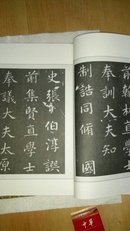 前翰林直
奉訓大夫知
制誥同脩國
史張伯淳譔
前集賢直學士
奉議大夫太原